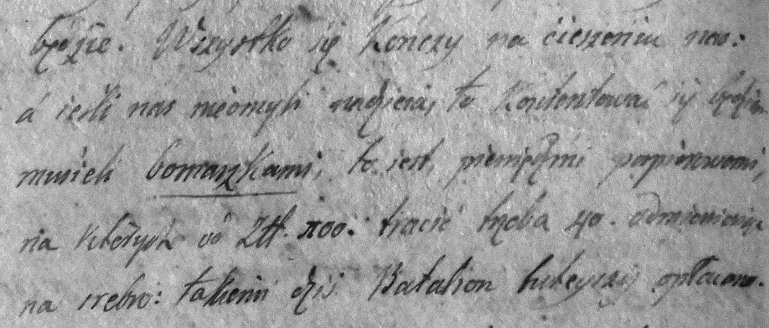 będzie. Wszystko się kończy na cieszeniu nas:
á ieśli nas nieomyli nadzieia, to kontentować się będzie
musieli bomaszkami, to iest, pieniędzmi papierowemi,
na których od Złł. 100. tracić trzeba 40. odmieniaiąc
na srebro: takiemi dziś Batalion tuteyszy opłacono.